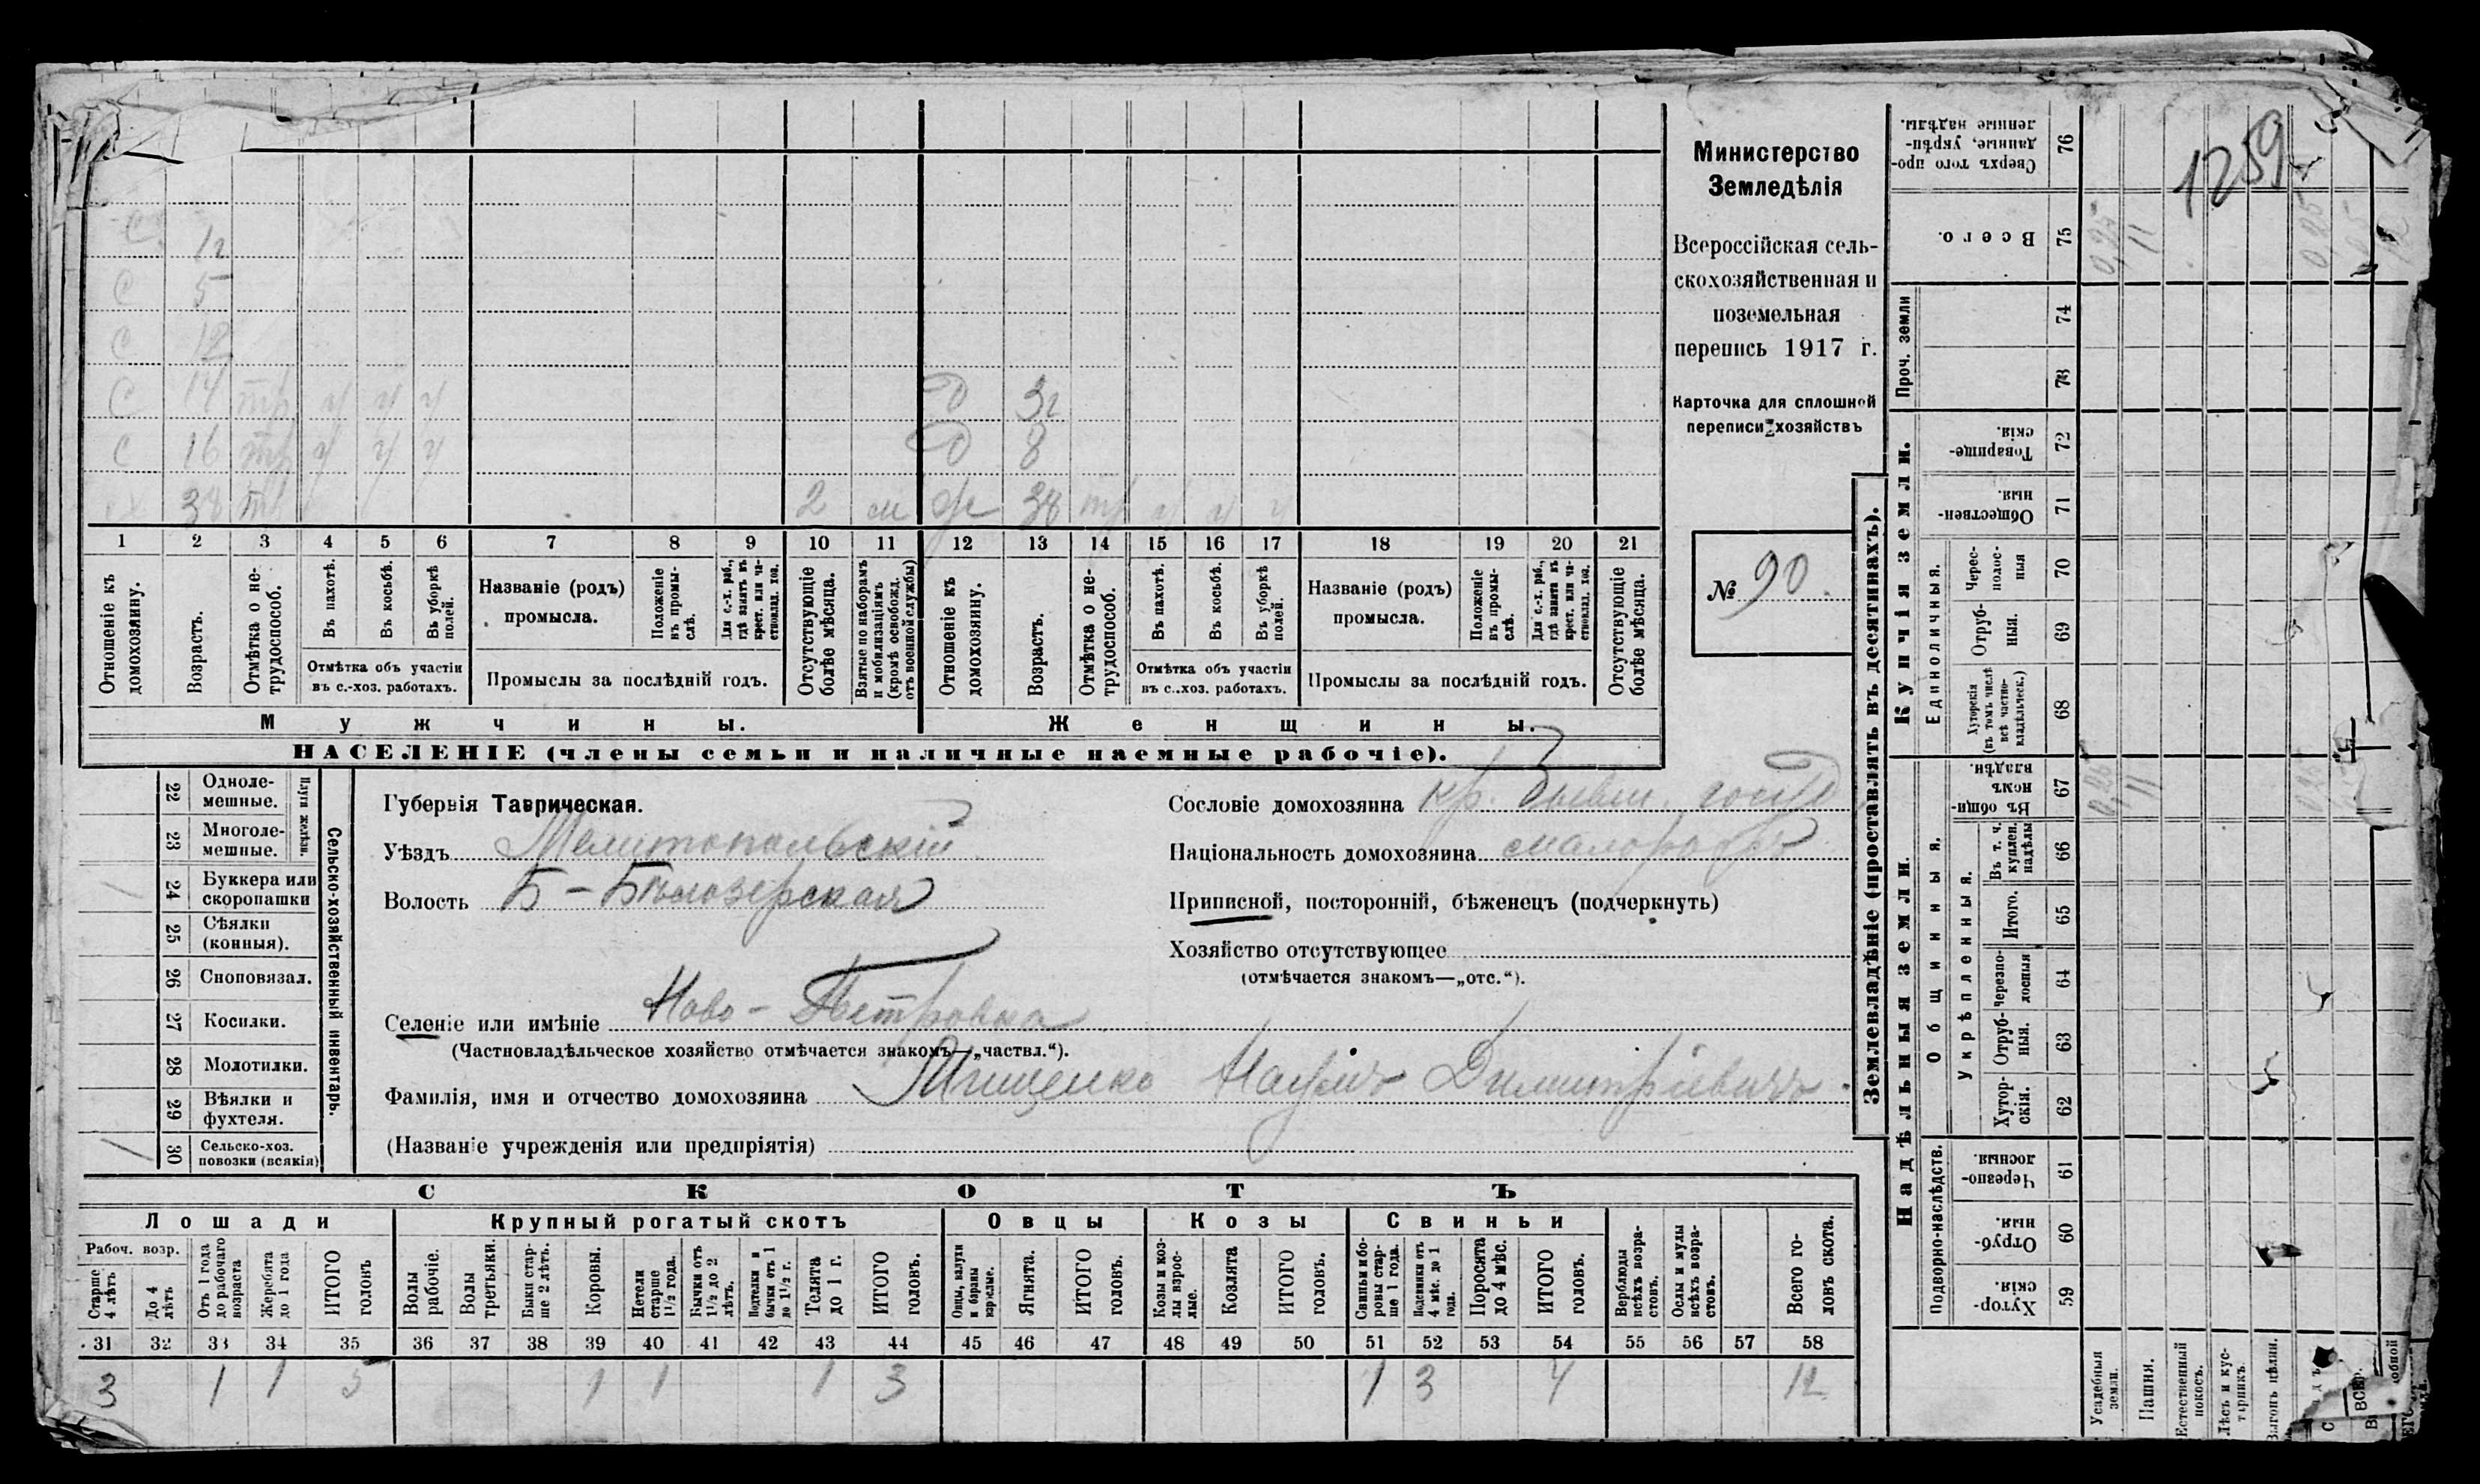 1259
Министерство
Земледѣлія
Всероссійская сель-
скохозяйственная и
поземельная
перепись 1917 г.
Карточка для сплошной
переписи хозяйствъ
№ 90
с 12
с 5
с 12
с 14 тр ч ч ч Д 3 г
с 16 тр ч ч ч Д 8
38 тр 2 м ж 38 тр ч ч ч
1 2 3 4 5 6 7 8 9 10 11 12 13 14 15 16 17 18 19 20 21
Отношеніе къ домохозяину.
Возрастъ.
Отмѣтка о не-трудоспособ.
Въ пахотѣ.
Въ косьбѣ.
Въ уборкѣ полей.
Отмѣтка объ участіи
въ с.-хоз. работахъ.
Названіе (родъ)
промысла.
Положеніе въ промы-слѣ.
Для с.-х. раб., гдѣ занятъ въ крест. или ча-стновлад. хоз.
Промыслы за послѣдній годъ.
Отсутствующіе болѣе мѣсяца.
Взятые по наборамъ и мобилизаціямъ (кромѣ освобожд. отъ военной службы)
Отношеніе къ домохозяину.
Возрастъ.
Отмѣтка о не-трудоспособ.
Въ пахотѣ.
Въ косьбѣ.
Въ уборкѣ полей.
Отмѣтка объ участіи
въ с.-хоз. работахъ.
Названіе (родъ)
промысла.
Положеніе въ промы-слѣ.
Для с.-х. раб., гдѣ занята въ крест. или ча-стновлад. хоз.
Промыслы за послѣдній годъ.
Отсутствующіе болѣе мѣсяца.
Мужчины. Женщины.
НАСЕЛЕНІЕ (члены семьи и наличные наемные рабочіе).
Сельско-хозяйственный инвентарь.
Плуги желѣзн.
22 Одноле-мешные.
23 Многоле-мешные.
24 Буккера или скоропашки
25 Сѣялки (конныя).
26 Сноповязал.
27 Косилки.
28 Молотилки.
29 Вѣялки и фухтеля.
30 Сельско-хоз. повозки (всякія) 1
Губернія Таврическая.
Уѣздъ Мелитопольскій
Волость Б-Бѣлозерская
Селеніе или имѣніе Ново-Петровка
(Частновладѣльческое хозяйство отмѣчается знакомъ—„частвл.“).
Сословіе домохозяина кр. бывш. госуд
Національность домохозяина малороссъ
Приписной, посторонній, бѣженецъ (подчеркнуть)
Хозяйство отсутствующее
(отмѣчается знакомъ—„отс.“).
Фамилія, имя и отчество домохозяина Наумъ Димитріевичъ
(Названіе учрежденія или предпріятія)
СКОТЪ
Лошади Крупный рогатый скотъ Овцы Козы Свиньи
Рабоч. возр.
Старше 4 лѣтъ
До 4 лѣтъ
Отъ 1 года до рабочаго возраста
Жеребята до 1 года
ИТОГО головъ
Волы рабочіе.
Волы третьяки.
Быки стар-ше 2 лѣтъ.
Коровы.
Нетели старше 1½ года.
Бычки отъ 1½ до 2 лѣтъ.
Подтелки и бычки отъ 1 до 1½ г.
Телята до 1 г.
ИТОГО головъ.
Овцы, валухи и бараны взрослые.
Ягнята.
ИТОГО головъ.
Козы и коз-лы взрос-лые.
Козлята
ИТОГО головъ.
Свиньи и бо-ровы стар-ше 1 года.
Подсвинки отъ 4 мѣс. до 1 года.
Поросята до 4 мѣс.
ИТОГО головъ.
Верблюды всѣхъ возра-стовъ.
Ослы и мулы всѣхъ возра-стовъ.
Всего го-ловъ скота.
31 32 33 34 35 36 37 38 39 40 41 42 43 44 45 46 47 48 49 50 51 52 53 54 55 56 57 58
3 1 1 5 1 1 1 3 1 3 4 12
Землевладѣніе (проставлять въ десятинахъ).
Купчія земли.
Надѣльныя земли.
Проч. земли
Единоличныя.
Общинныя.
Укрѣпленныя.
Подворно-наслѣдств.
76 Сверхъ того про-данные, укрѣп-ленные надѣлы.
75 Всего. 0,25 11
74
73
72 Товарище-скія.
71 Обществен-ныя.
70 Черес-полос-ныя
69 Отруб-ныя.
68 Хуторскія (въ томъ числѣ всѣ частно-владѣльческ.)
67 Въ общи-номъ владѣн. 0,25 11
66 Въ т. ч. куплен. надѣлы
65 Итого.
64 Черезпо-лосныя
63 Отруб-ныя.
62 Хутор-скія.
61 Черезпо-лосныя.
60 Отруб-ныя.
59 Хутор-скія.
Усадебныя земли.
Пашня.
Естественный покосъ.
Лѣсъ и кус-тарникъ.
Выгонъ цѣлин.